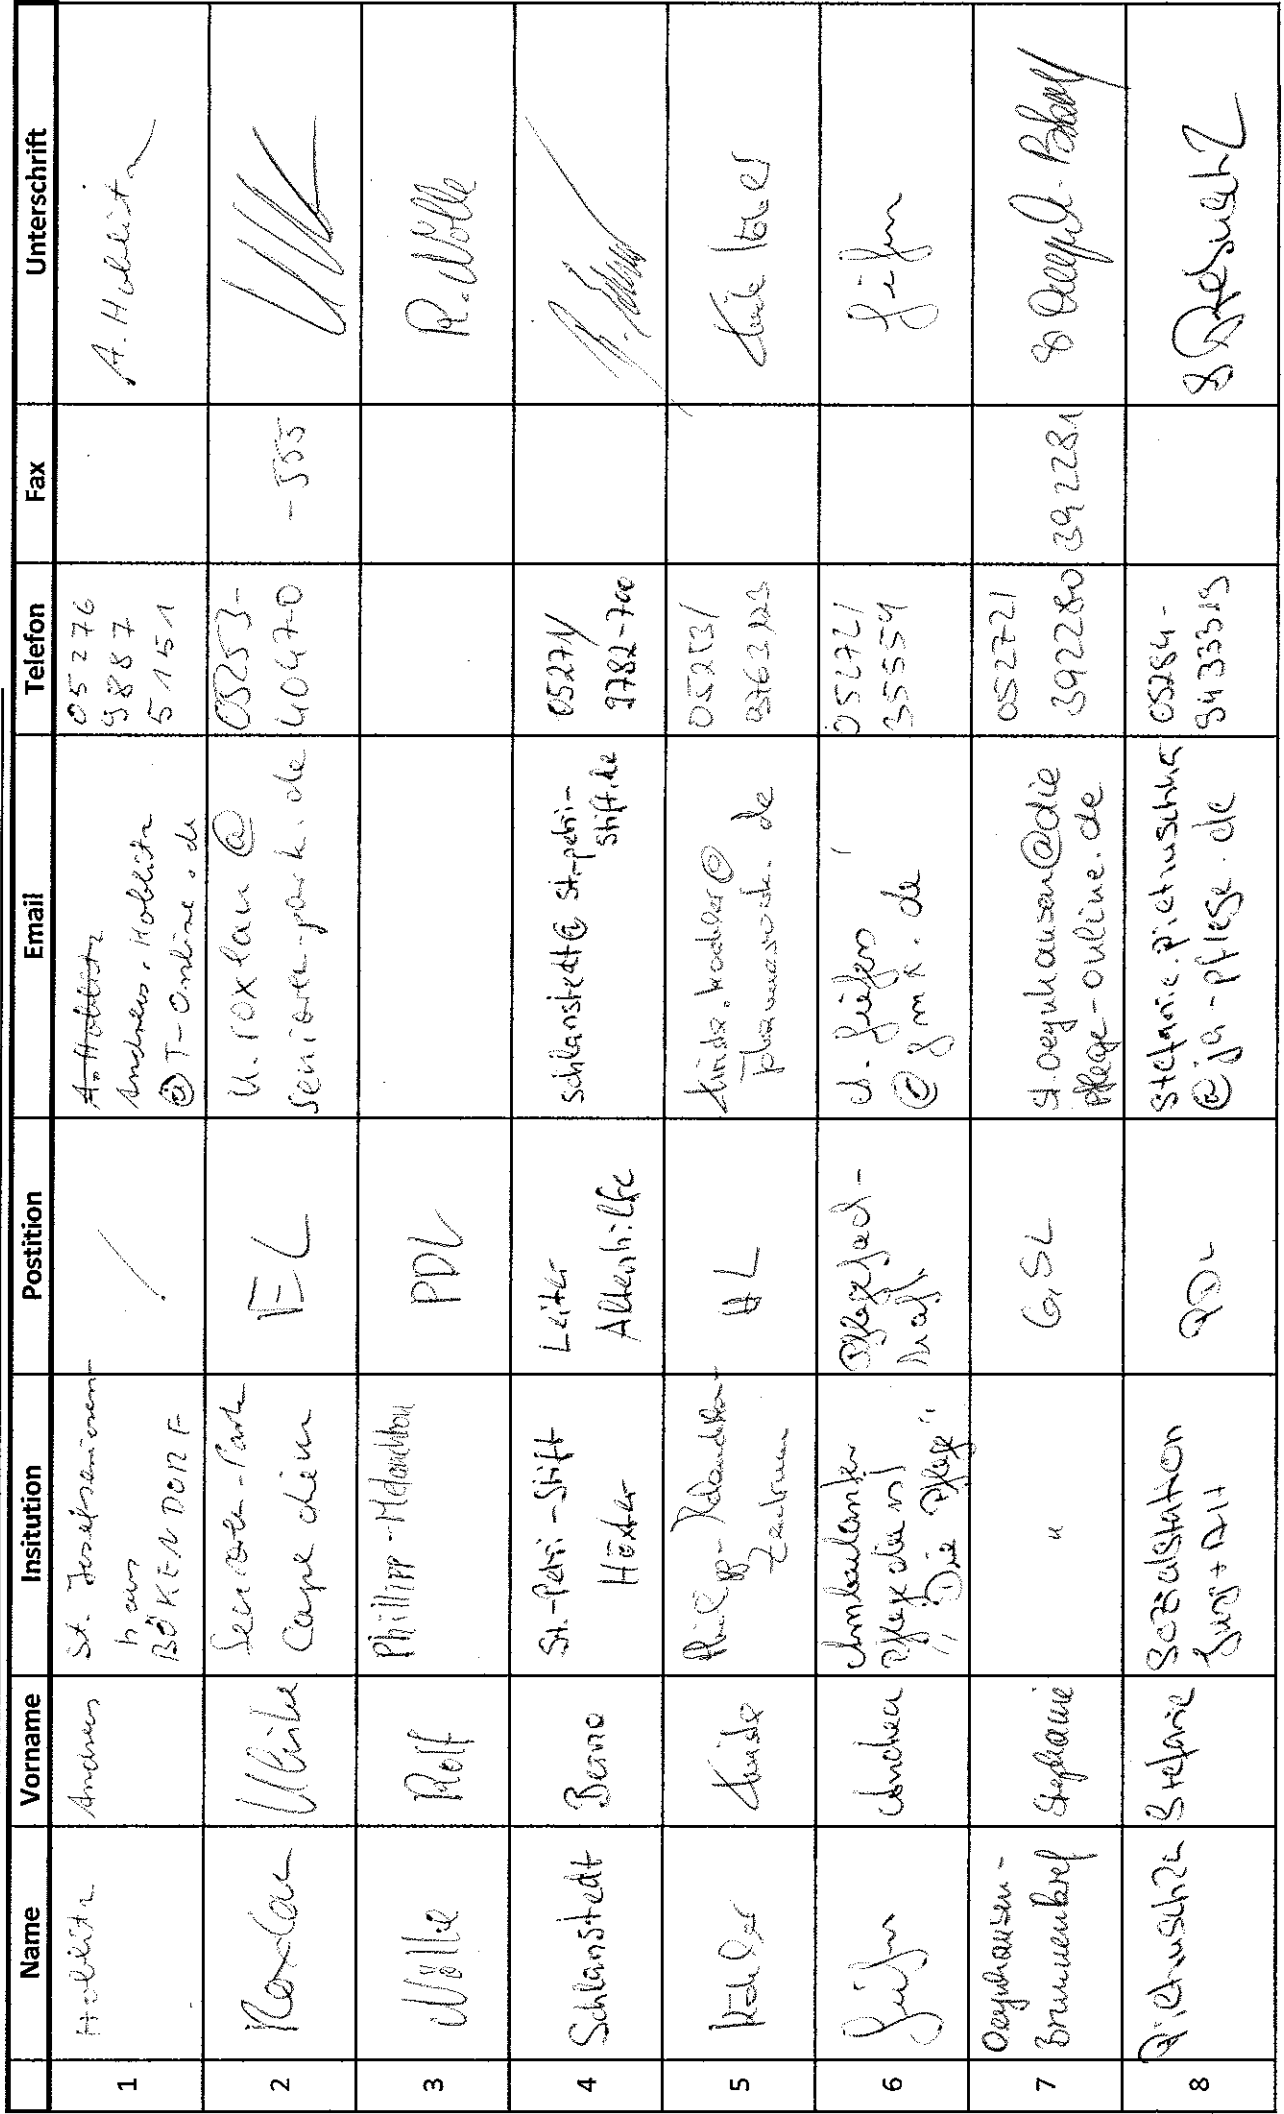 Name Vorname Insitution Postition Email Telefon Fax Unterschrift
1 Hoblitz Andreas St. Josefseniorenhaus BÖKENDORF / A. Hoblitz Andreas.Hoblitz @T-Online.de 05276 9887 5151 A. Hoblitz
2 Roxlau Ulrike Senioren-Park Carpe diem EL U.roxlau@ senioren-park.de 05253- 40470 -555
3 Nölle Rolf Phillipp-Melanchthon PDL R. Nölle
4 Schlanstedt Benno St.-Petri-Stift Höxter Leiter Altenhilfe schlanstedt@st-petri-stift.de 05271/ 9782-700
5 Köhler Philipp-Melanchthon-Zentrum HL 05253/ 9762123
6 Andrea Ambulanter Pflegedienst "Die Pflege" Pflegefach- kraft @gmx.de 05272/ 35554
7 Oeynhausen- Stephanie " G.SL st.oeynhausen@die pflege-online.de 05272/ 392280 392281
8 Pietruschka Stefanie Sozialstation PDL stefanie.pietruschka @ja-pflege.de 05284- 9433319